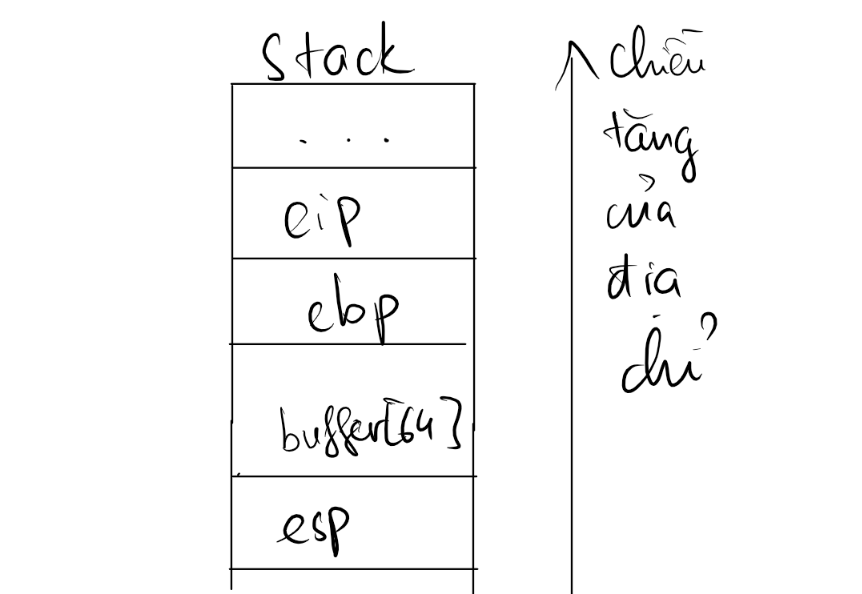 Stack
. . .
eip
ebp
buffer[64]
esp
chiều
tăng
của
địa
chỉ